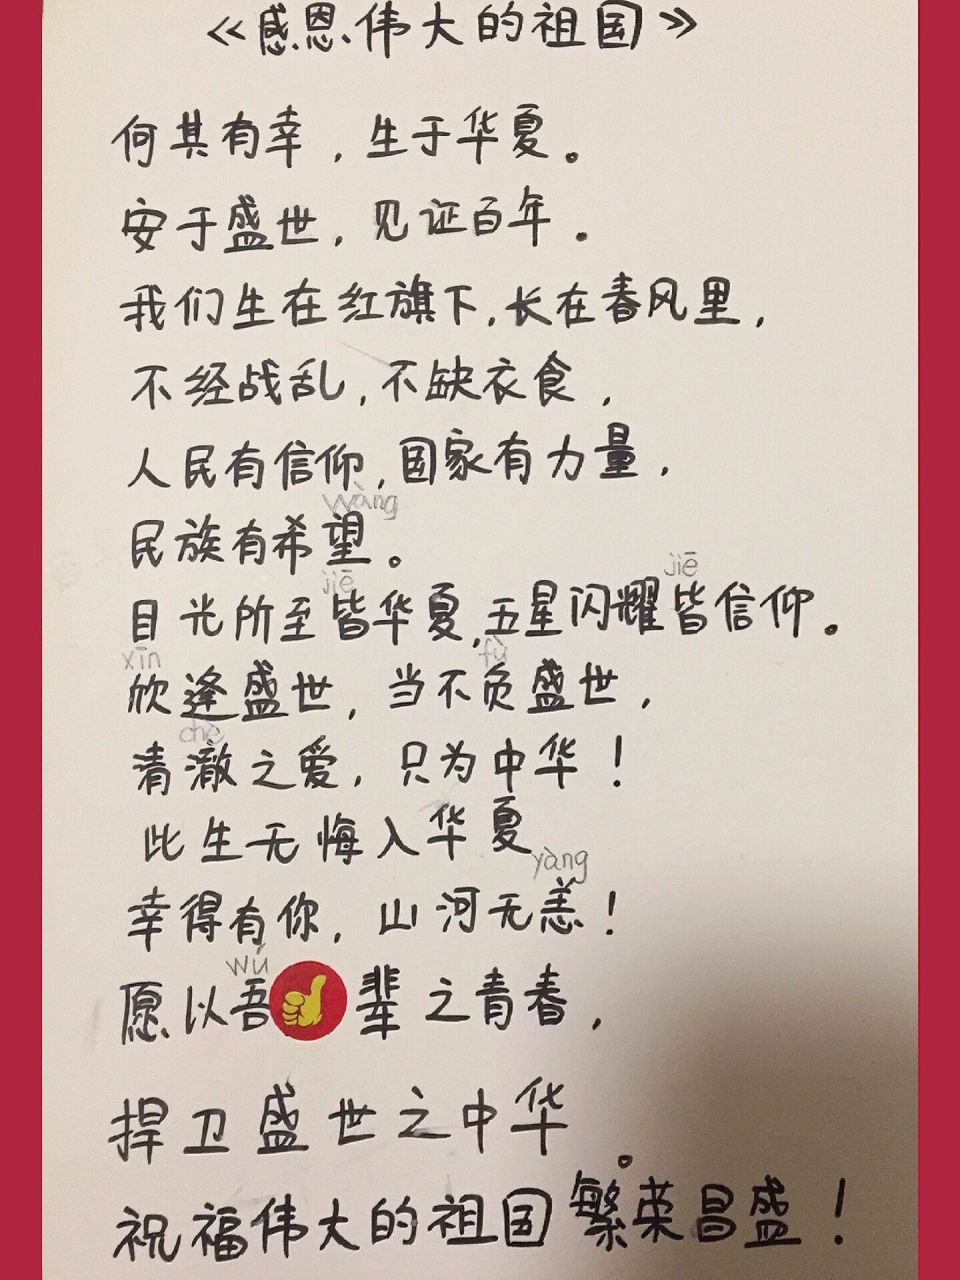 《感恩伟大的祖国》
何其有幸，生于华夏。
安于盛世，见证百年。
我们生在红旗下，长在春风里，
不经战乱，不缺衣食，
人民有信仰，国家有力量，
wàng
民族有希望。
jiē jiē
目光所至皆华夏，五星闪耀皆信仰。
xīn fù
欣逢盛世，当不负盛世，
chè
清澈之爱，只为中华！
此生无悔入华夏
yàng
幸得有你，山河无恙！
wú
愿以吾辈之青春，
捍卫盛世之中华。
祝福伟大的祖国繁荣昌盛！